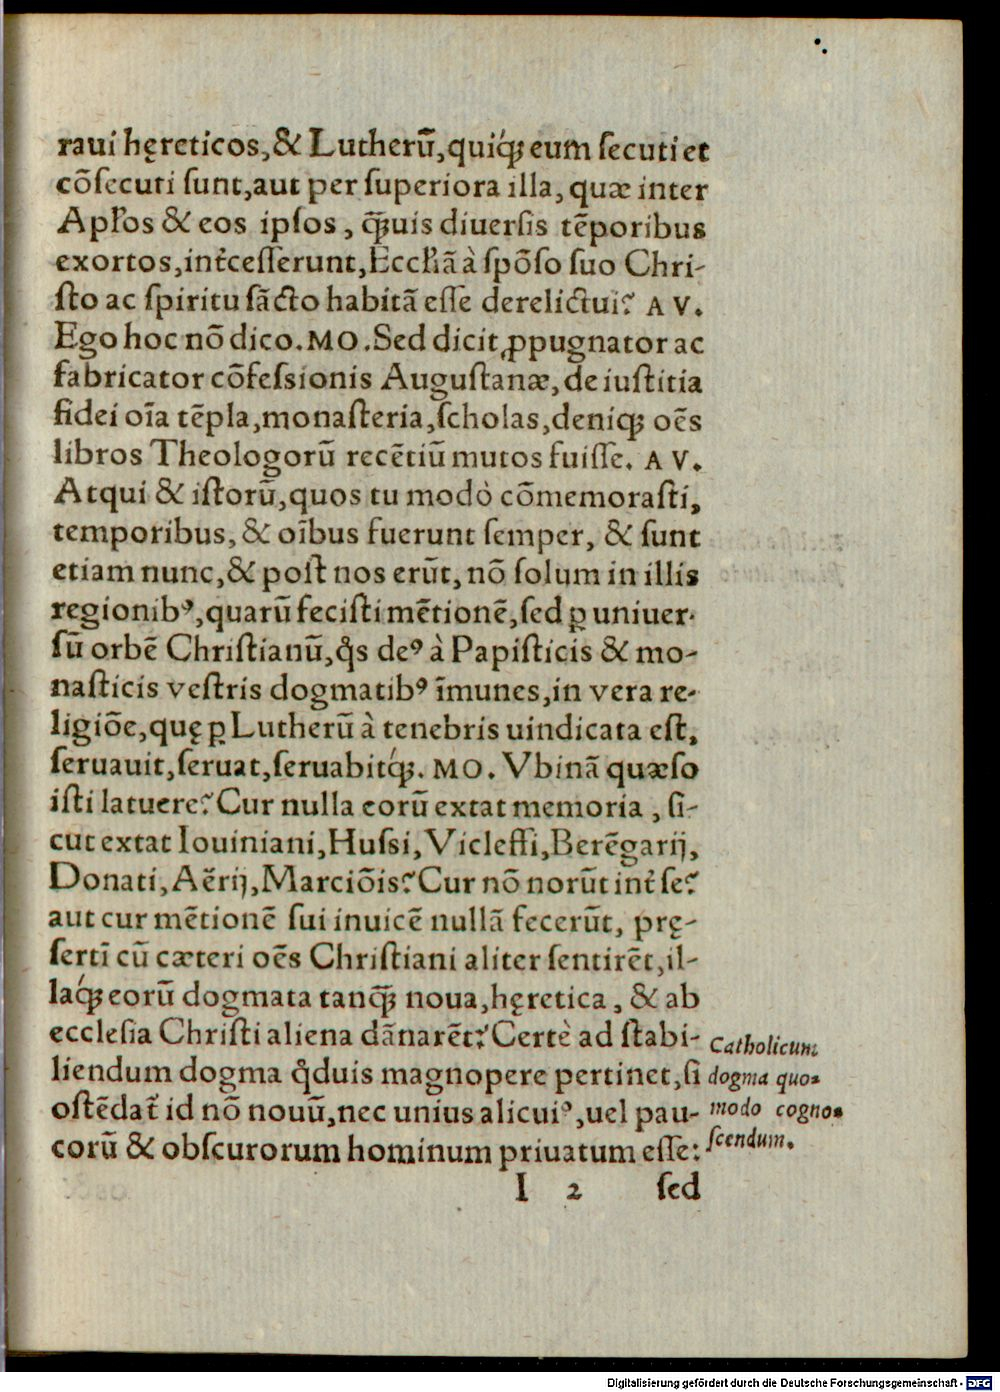 raui hęreticos, & Lutherũ, quiq́ꝫ eum ſecuti et
cõſecuti ſunt, aut per ſuperiora illa, quæ inter
Apłos & eos ipſos, q̃ꝫuis diuerſis tẽporibus
exortos, int̃ceſſerunt, Eccłiã à ſpõſo ſuo Chri-
ſto ac ſpiritu ſãcto habitã eſſe derelictui? AV.
Ego hoc nõ dico. MO. Sed dicit ꝓpugnator ac
fabricator cõfeſsionis Auguſtanæ, de iuſtitia
fidei oĩa tẽpla, monaſteria, ſcholas, deniqꝫ oẽs
libros Theologorũ recẽtiũ mutos fuiſſe. AV.
Atqui & iſtorũ, quos tu modò cõmemoraſti,
temporibus, & oĩbus fuerunt ſemper, & ſunt
etiam nunc, & poſt nos erũt, nõ ſolum in illis
regionibꝰ, quarũ feciſti mẽtionẽ, ſed ꝑ uniuer-
ſũ orbẽ Chriſtianũ, q̊s deꝰ à Papiſticis & mo-
naſticis veſtris dogmatibꝰ ĩmunes, in vera re-
ligiõe, quę ꝑ Lutherũ à tenebris uindicata eſt,
ſeruauit, ſeruat, ſeruabitq́ꝫ. MO. Vbinã quæſo
iſti latuere? Cur nulla eorũ extat memoria, ſi-
cut extat Iouiniani, Huſsi, Vicleffi, Berẽgarij,
Donati, Aërij, Marciõis? Cur nõ norũt int̃ ſe?
aut cur mẽtionẽ ſui inuicẽ nullã fecerũt, prę-
ſertĩ cũ cæteri oẽs Chriſtiani aliter ſentirẽt, il-
laq́ꝫ eorũ dogmata tanq̃ꝫ noua, hęretica, & ab
eccleſia Chriſti aliena dãnarẽt? Certè ad ſtabi-
liendum dogma q̊duis magnopere pertinet, ſi
oſtẽdat̃ id nõ nouũ, nec unius alicuiꝰ, uel pau-
corũ & obſcurorum hominum priuatum eſſe:
Catholicum
dogma quo-
modo cogno-
ſcendum.
I 2 ſed
Digitalisierung gefördert durch die Deutsche Forschungsgemeinschaft - DFG